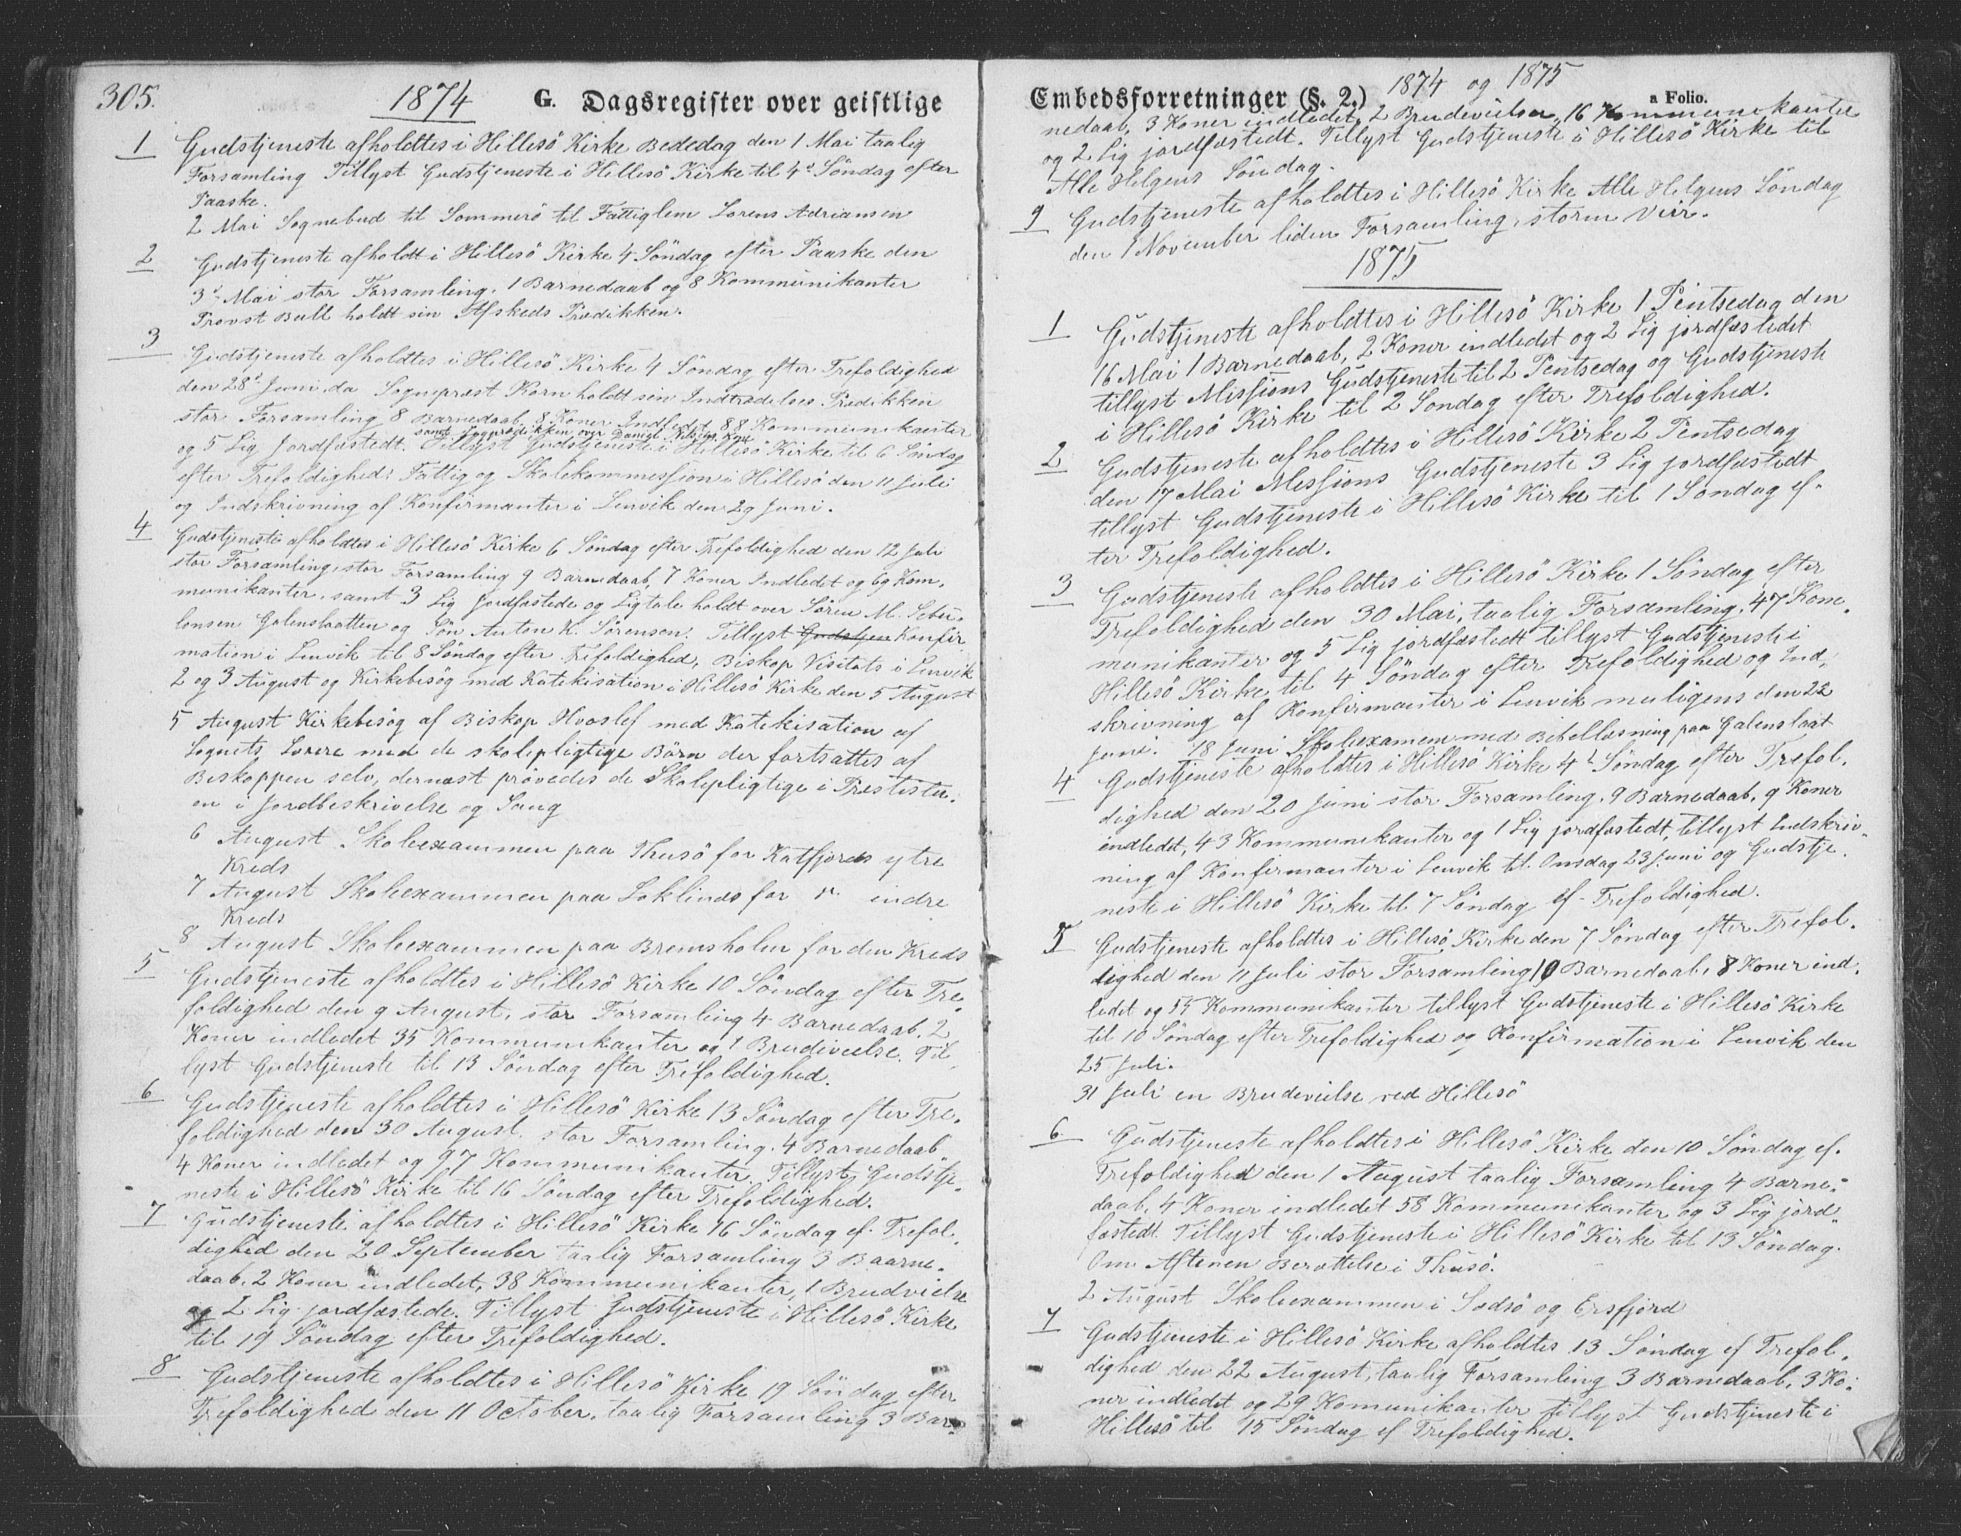 305.
1874
G. Dagsregister over geistlige
1 Gudstjeneste afholdtes i Hillesö Kirke Bededag den 1 Mai taalig
Forsamling Tillyst Gudstjeneste i Hillesö Kirke til 4de Söndag efter
Paaske.
2 Mai Sognebud til Sommerö til Fattiglem Lorens Adriansen
2 Gudstjeneste afholdt i Hillesö Kirke 4 Söndag efter Paaske den
3die Mai stor Forsamling. 1 Barnedaab og 8 Kommunikanter
Provst Bull holdt sin Afskeds Prædikken.
3 Gudstjeneste afholdtes i Hillesö Kirke 4 Söndag efter Trefoldighed
den 28de Juni da Sognepræst Korn holdt sin Indtrædelses Prædikken
stor Forsamling 8 Barnedaab, 8 Koner Indledet 88 Kommunikanter
og 5 Lig Jordfæstedt. Tillyst Gudstjeneste i Hillesö Kirke til 6 Söndag
efter Trefoldighed; Fattig og Skolekommission i Hillesö den 11 Juli
og Indskrivning af Konfirmanter i Lenvik den 29 Juni.
4 Gudstjeneste afholdtes i Hillesö Kirke 6 Söndag efter Trefoldighed den 12 Juli
stor Forsamling, stor Forsamling 9 Barnedaab, 7 Koner Indledet og 69 Kom,
munikanter, samt 3 Lig Jordfæstede og Ligtale holdt over Sören M. Sebu,
lonsen Galenslaatten og Sön Anton K. Sörenson. Tillyst Gudstjen Konfir
mation i Lenvik til 8 Söndag efter Trefoldighed, Biskop Visitats i Lenvik
2 og 3 August og Kirkebesög med Katekisation i Hillesö Kirke den 5 August
5 August Kirkebesög af Biskop Hvoslef med Katekisation af
Sognets Lærere med de skolepligtige Börn der fortsattes af
Biskoppen selv, dernæst prövedes de Skolepligtige i
en i Jordbeskrivelse og Sang
6 August Skoleexammen paa Thusö for Katfjords ytre
Kreds
7 August Skoleexammen paa for " indre
Kreds
8 August Skoleexammen paa Bremsholen for den Kreds
5 Gudstjeneste afholdtes i Hillesö Kirke 10 Söndag efter Tre,
foldighed den 9 August, stor Forsamling 4 Barnedaab, 2
Koner indledet 35 Kommunikanter og 1 Brudevielse. Til,
lyst Gudstjeneste til 13 Söndag efter Trefoldighed.
6 Gudstjeneste afholdtes i Hillesö Kirke 13 Söndag efter Tre,
foldighed den 30 August. stor Forsamling. 4 Barnedaab
4 Koner indledet og 97 Kommunikanter. Tillyst Gudstje,
neste i Hillesö Kirke til 16 Söndag efter Trefoldighed.
7 Gudstjeneste afholdtes i Hillesö Kirke 16 Söndag ef. Trefol,
dighed den 20 September taalig Forsamling 3 Baarne,
daab, 2 Koner indledet, 38 Kommunikanter, 1 Brudvielse
og 2 Lig jordfæstede. Tillyst Gudstjeneste i Hillesö Kirke
til 19 Söndag efter Trefoldighed.
8 Gudstjeneste afholdtes i Hillesö Kirke 19 Söndag efter
Trefoldighed den 11 October, taalig Forsamling 3 Bar,
Embedsforretninger (§. 2.)
1874 og 1875
a Folio.
nedaab, 3 Koner indledet, 2 Brudevielser, 16 Kommunikanter
og 2 Lig jordfæstedt. Tillyst Gudstjeneste i Hillesö Kirke til
Alle Helgens Söndag.
9 Gudstjeneste afholdtes i Hillesö Kirke Alle Helgens Söndag
den 1 November liden Forsamling, storm Veir.
1875
1 Gudstjeneste afholdtes i Hillesö Kirke 1 Pentsedag den
16 Mai 1 Barnedaab, 2 Koner indledet og 2 Lig jordfæstedet
tillyst Missions Gudstjeneste til 2 Pentsedag og Gudstjeneste
i Hillesö Kirke til 2 Söndag efter Trefoldighed.
2 Gudstjeneste afholdtes i Hillesö Kirke 2 Pentsedag
den 17 Mai Missions Gudstjeneste 3 Lig jordfæstedt
tillyst Gudstjeneste i Hillesö Kirke til 1 Söndag ef,
ter Trefoldighed.
3 Gudstjeneste afholdtes i Hillesö Kirke 1 Söndag efter
Trefoldighed den 30 Mai, taalig Forsamling. 47 Kom,
munikanter og 5 Lig jordfæstedt tillyst Gudstjeneste i
Hillesö Kirke til 4 Söndag efter Trefoldighed og Ind,
skrivning af Konfirmanter i Lenvik muligens den 22
Juni. 18 Juni Skoleexamen med Bibellæsning paa Galenslaat
4 Gudstjeneste afholdtes i Hillesö Kirke 4de Söndag efter Trefol,
dighed den 20 Juni stor Forsamling. 9 Barnedaab, 9 Koner
indledet, 43 Kommunikanter og 1 Lig jordfæstedt, tillyst Indskriv,
ning af Konfirmanter i Lenvik til Onsdag 23 Juni og Gudstje,
neste i Hillesö Kirke til 7 Söndag ef. Trefoldighed.
5 Gudstjeneste afholdtes i Hillesö Kirke den 7 Söndag efter Trefol,
dighed den 11 Juli stor Forsamling 10 Barnedaab, 8 Koner ind,
ledet og Kommunikanter tillyst Gudstjeneste i Hillesö Kirke
til 10 Söndag efter Trefoldighed og Konfirmation i Lenvik den
25 Juli.
31 Juli en Brudevielse ved Hillesö
6 Gudstjeneste afholdtes i Hillesö Kirke den 10 Söndag ef.
Trefoldighed den 1 August taalig Forsamling 4 Barne,
daab, 4 Koner indledet 58 Kommunikanter og 3 Lig jord,
fæstedt Tillyst Gudstjeneste i Hillesö Kirke til 13 Söndag.
Om Aftenen Berettelse i Thusö.
2 August Skoleexammen i og Ersfjord
7 Gudstjeneste i Hillesö Kirke afholdtes 13 Söndag ef Trefol,
dighed den 22 August, taalig Forsamling 3 Barnedaab, 3 Ko,
ner indledet og 29 Komunikanter tillyst Gudstjeneste i
Hillesö til 15 Söndag ef Trefoldighed.